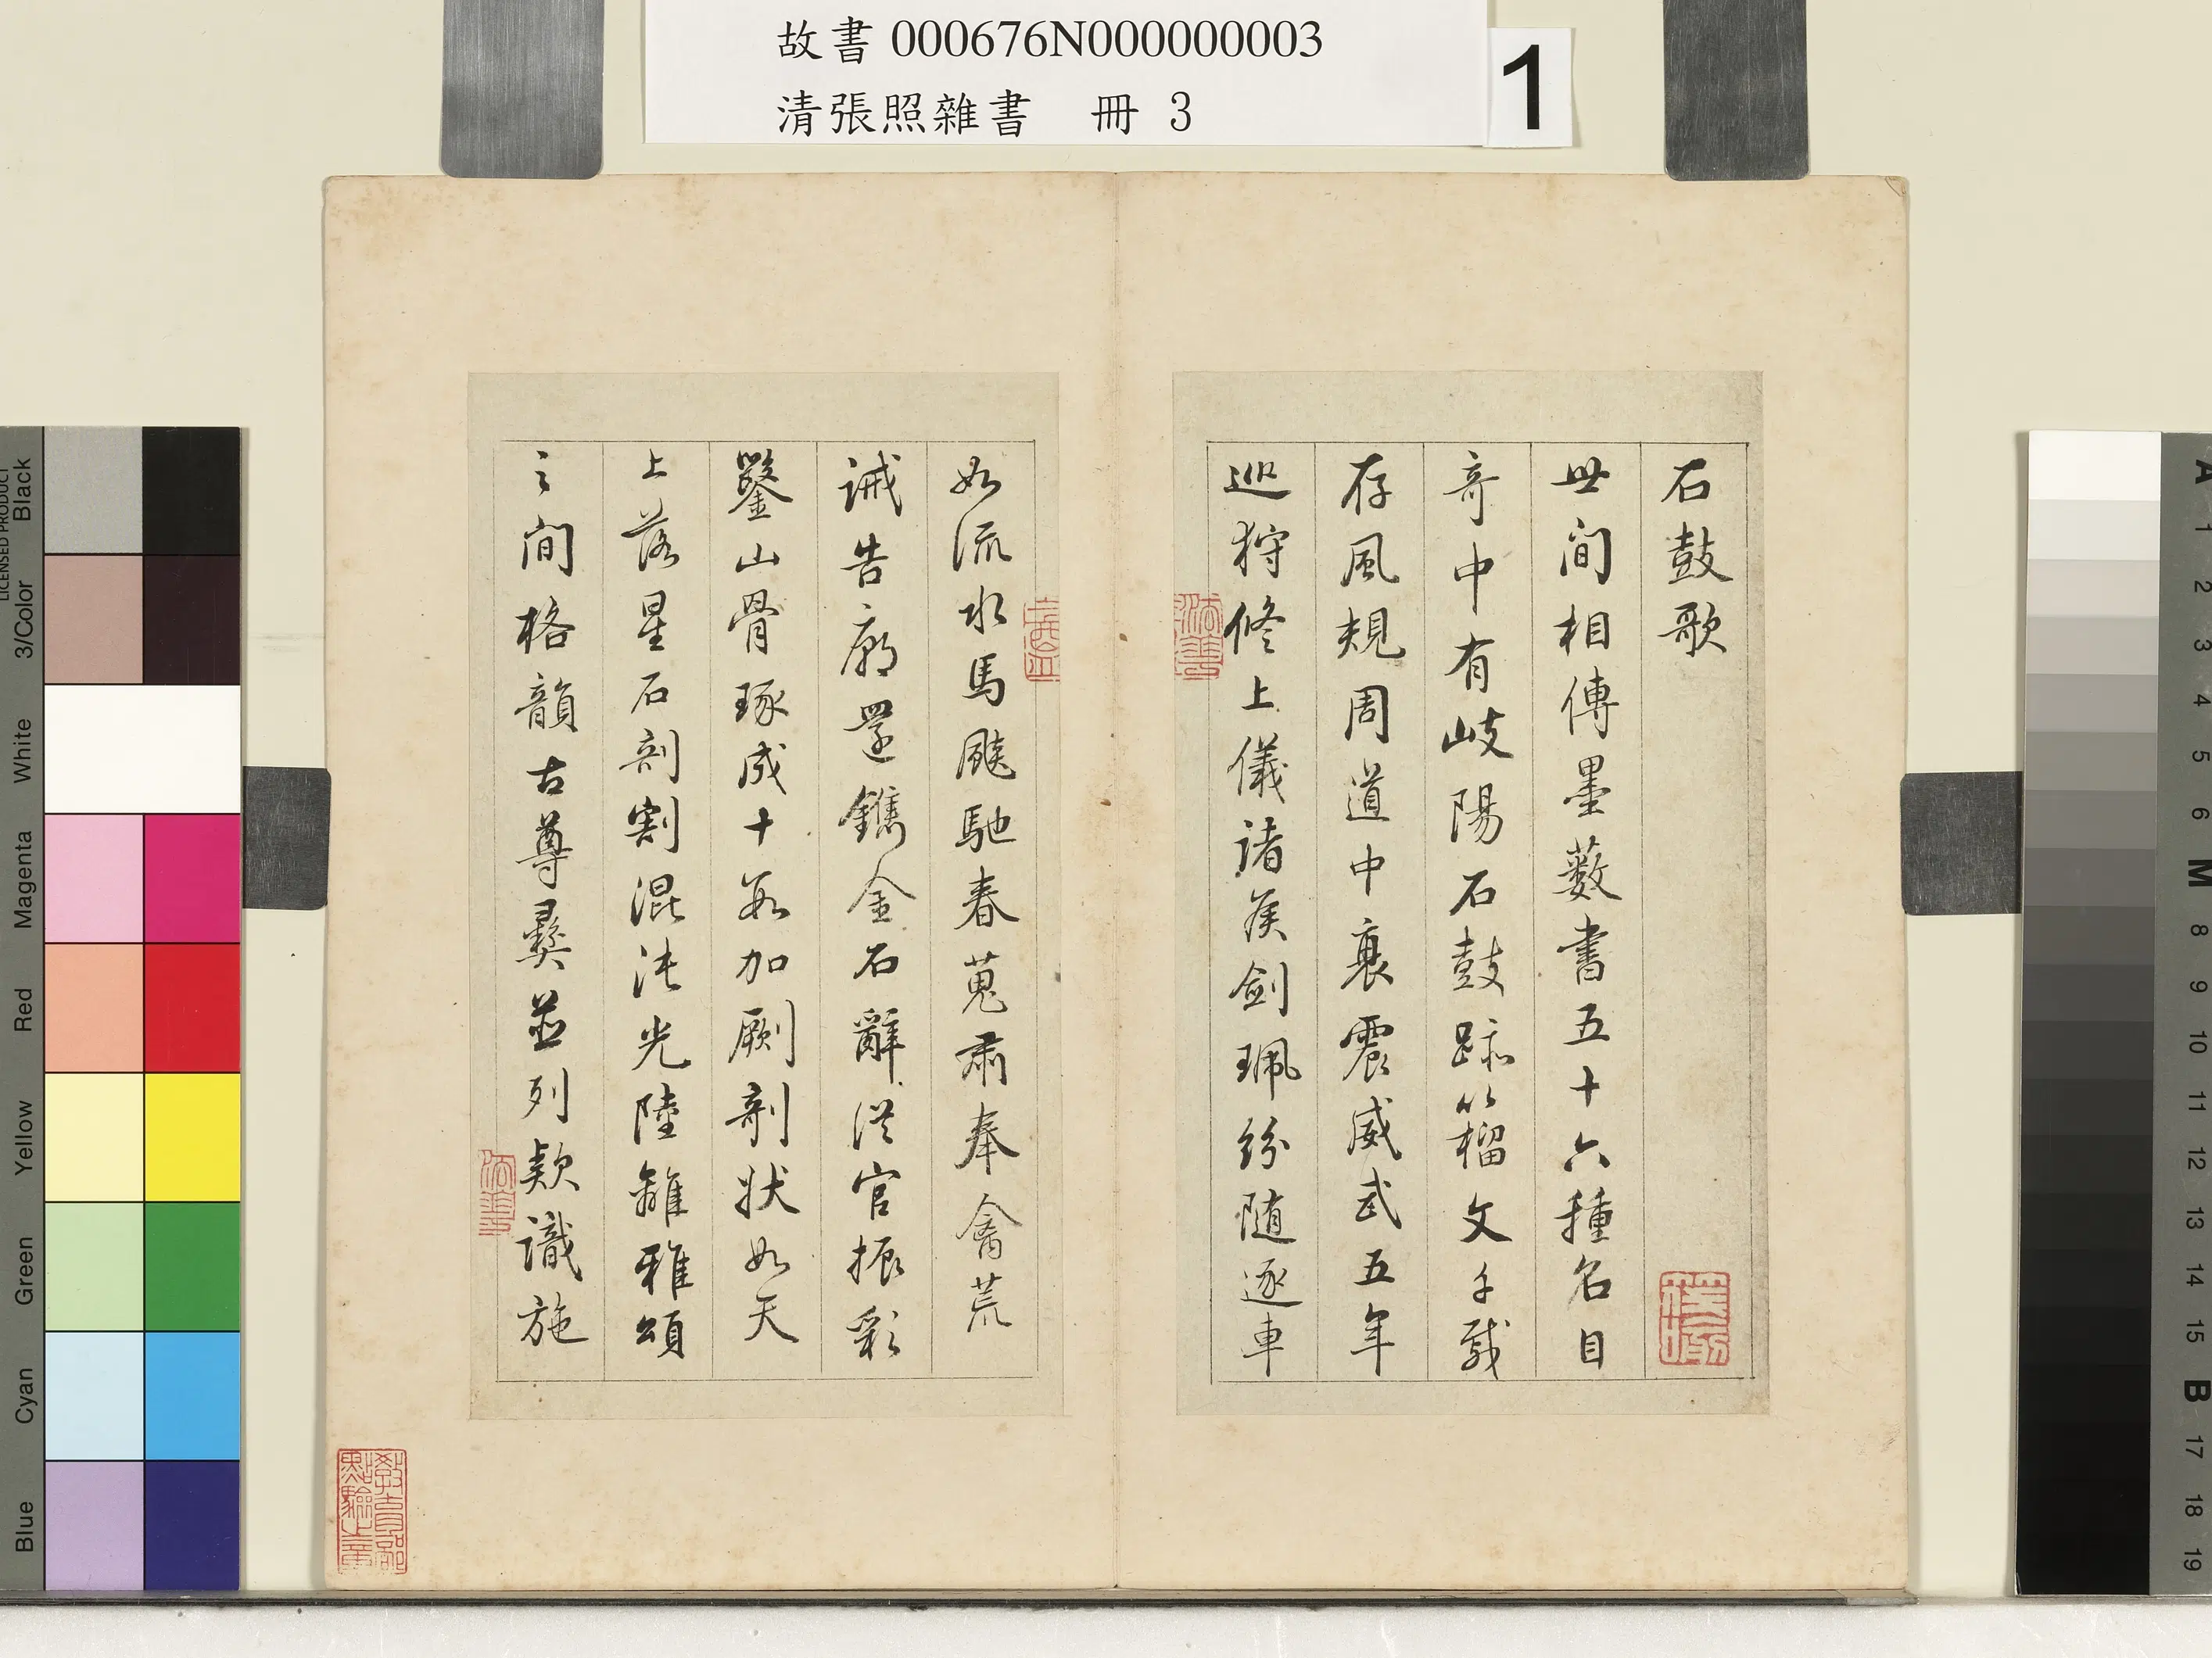 故書 000676N000000003
清張照雜書　冊 3
1
石鼓歌
世間相傳墨藪書五十六種名目
奇中有岐陽石鼓跡籀文千載
存風規周道中衰震威武五年
巡狩修上儀諸侯劍珮紛隨逐車
如流水馬飈馳春蒐肅奉禽荒
誡告廟還鐫金石辭從官振彩
鑿山骨琢成十鼓加劂剞狀如天
上落星石剖割混沌光陸離雅頌
之間格韻古尊彝並列款識施
教育部
點驗之章
LICENSED PRODUCT
Black
3/Color
White
Magenta
Red
Yellow
Green
Cyan
Blue
A
1
2
3
4
5
6
M
8
9
10
11
12
13
14
15
B
17
18
19